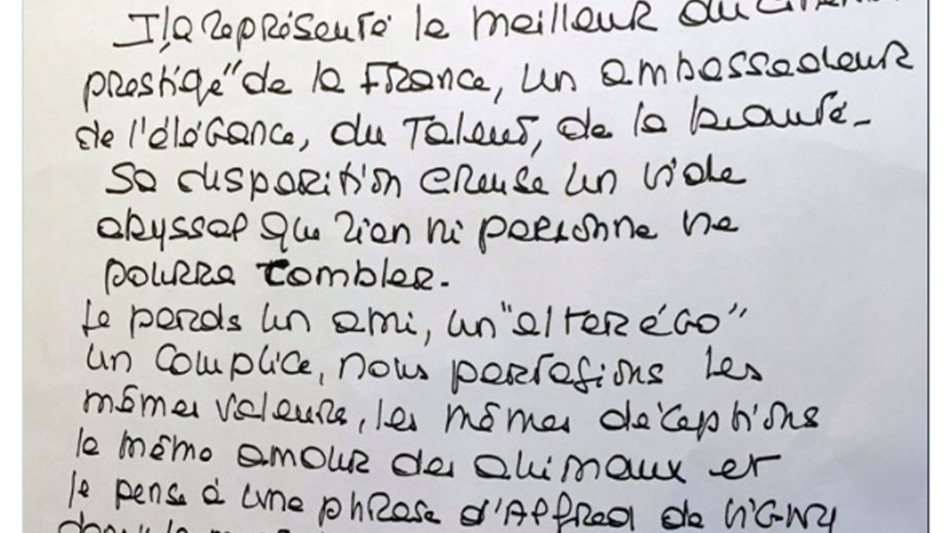 Il a représenté le meilleur du
prestige" de la France, un ambassadeur
de l'élégance, du Talent, de la beauté-
Sa disparition creuse un vide
abyssal que rien ni personne ne
pourra combler.
Je perds un ami, un "alter égo"
un complice, nous partagions les
mêmes valeurs, les mêmes déceptions
le même amour des animaux et
je pense à une phrase d'Alfred de VIGNY
dans la